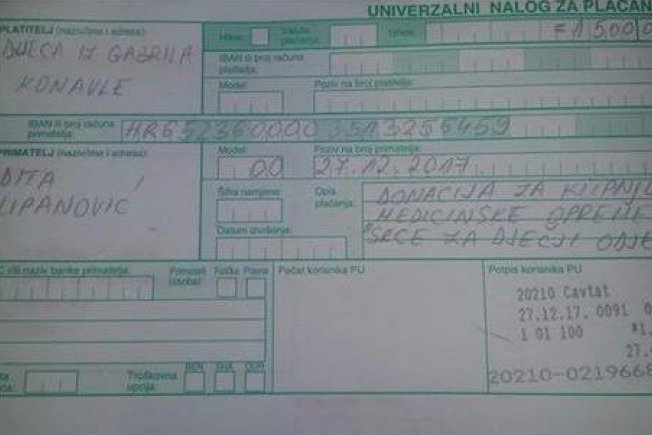 UNIVERZALNI NALOG ZA PLAĆAN
PLATITELJ (naziv/ime i adresa):
Hitno:
Valuta plaćanja:
Iznos:
=1500,0
DJECA IZ GABRILA
KONAVLE
IBAN ili broj računa platitelja:
Model:
Poziv na broj platitelja:
IBAN ili broj računa primatelja:
PRIMATELJ (naziv/ime i adresa):
Model:
Poziv na broj primatelja:
00
27.12.2017.
DITA
LIPANOVIĆ
Šifra namjene:
Opis plaćanja:
DONACIJA ZA KUPNJU
MEDICINSKE OPREME
"SRCE ZA DJEČJI ODJE
Datum izvršenja:
C i/ili naziv banke primatelja:
Primatelj (osoba):
Fizička
Pravna
Pečat korisnika PU
Potpis korisnika PU
20210 Cavtat
27.12.17. 0091 0
1 01 100 *1.
27.
20210-0219668
Troškovna opcija:
BEN
SHA
OUR